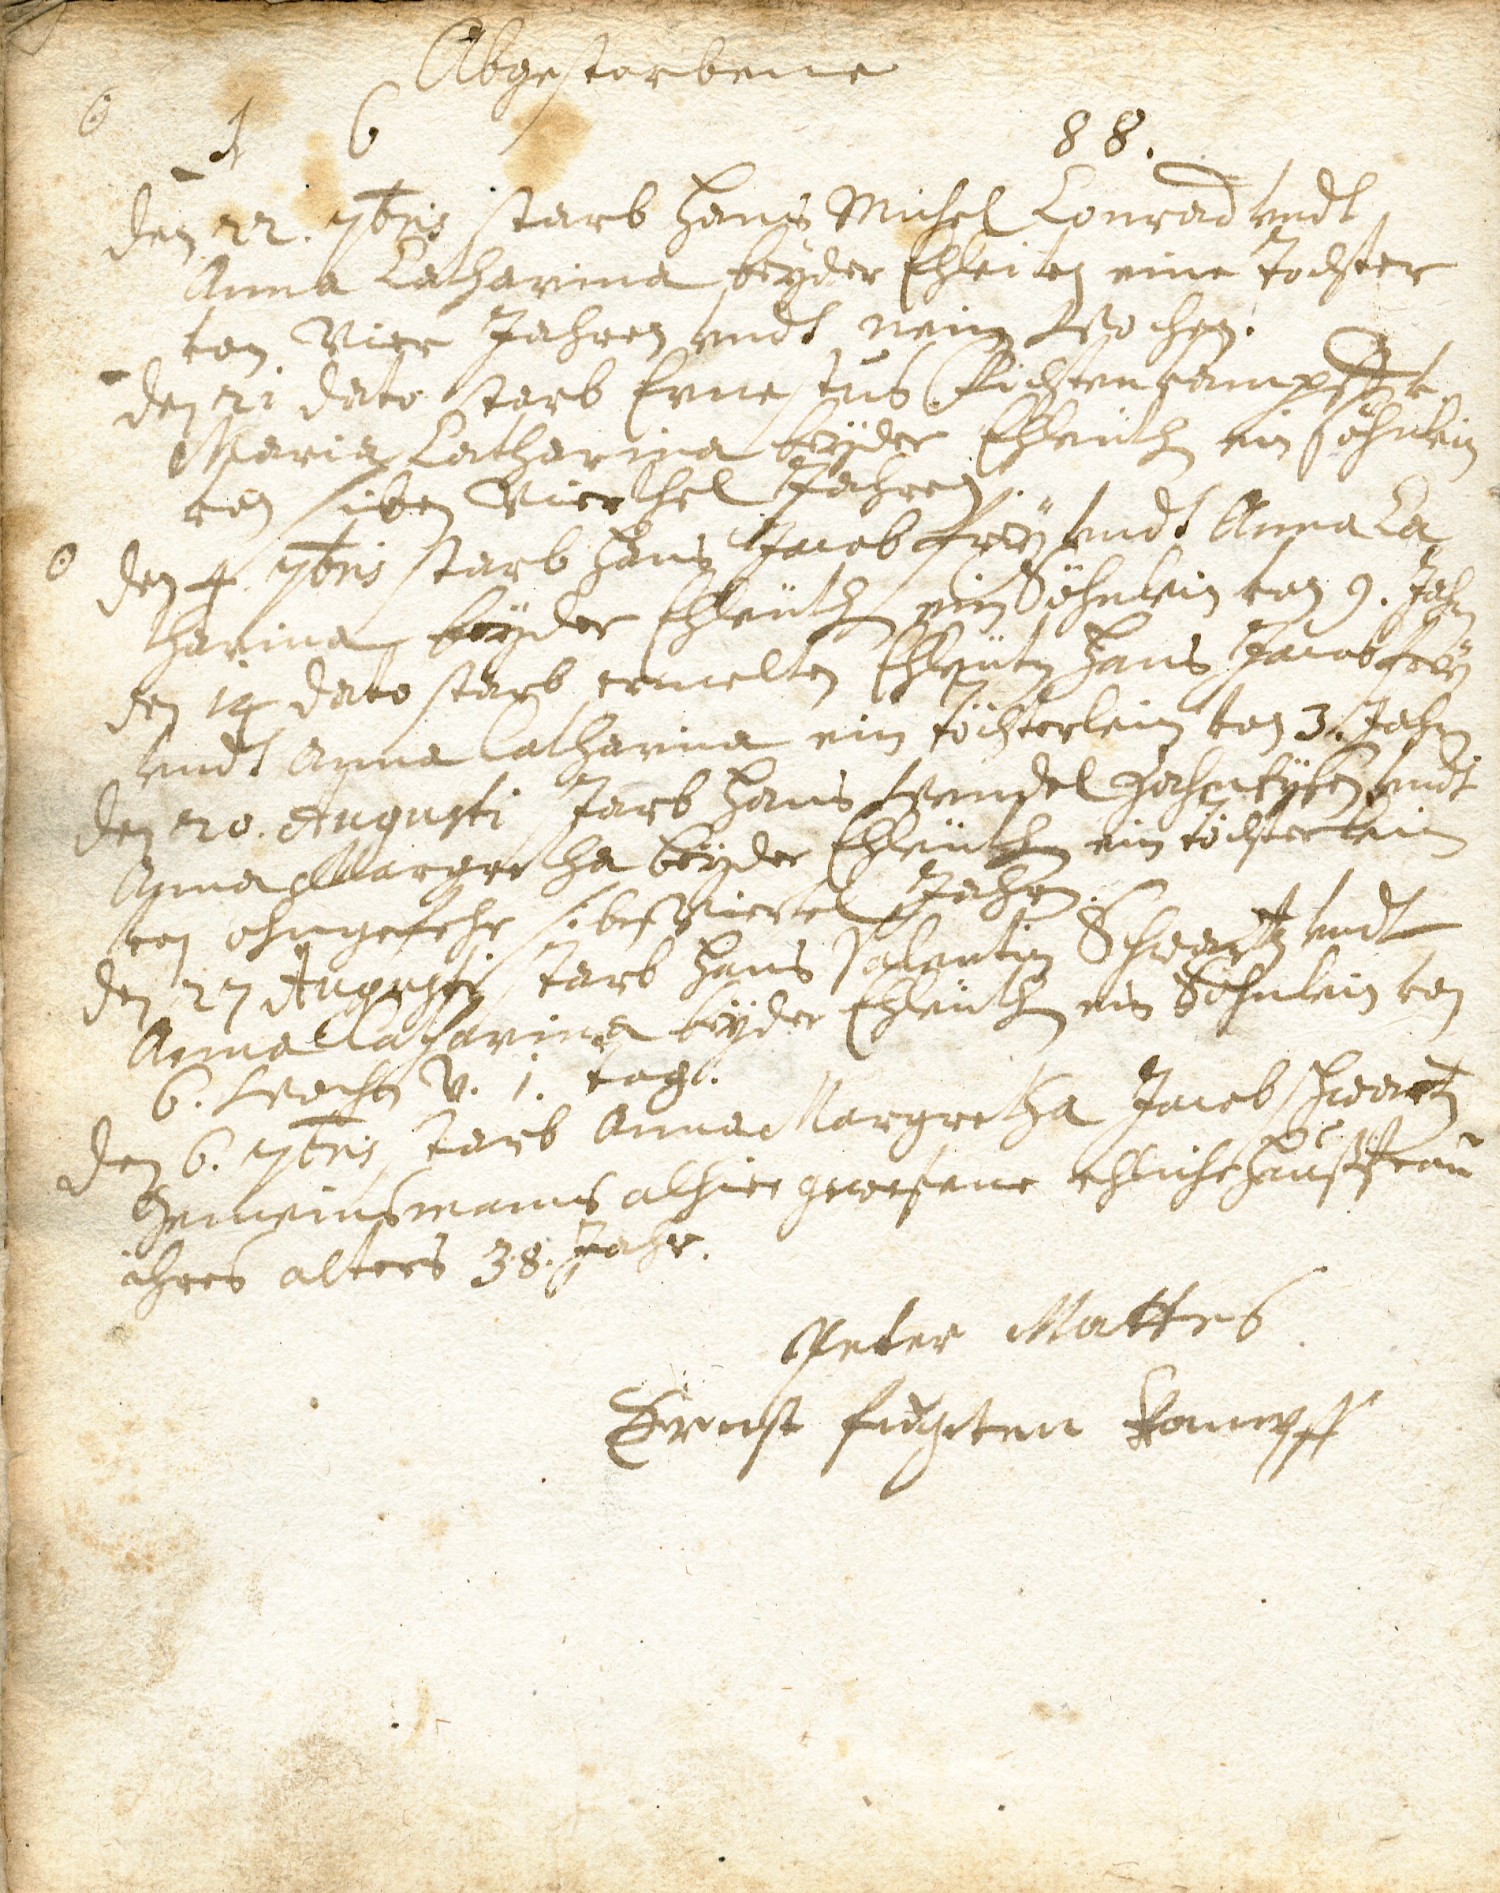 Abgestorbene
1 6 88.
den 22. 7bris starb Hans Michel Conrad undt
Anna Catharina beyder Ehleiten eine Tochter
von Vier Jahren undt nein Wochen.
den 21 dato starb Ernestus Fichtenkampff
Maria Catharina beyder Ehleüth ein söhnlein
von siben Vierthel Jahren.
den 4. 7bris starb Hans Jacob Frey undt Anna Ca
tharina beyder Ehleüth ein Söhnlein von 9. Jahrn
den 14 dato starb ermelten Ehleüten Hans Jacob Frey
undt Anna Catharina ein töchterlein von 3. Jahrn
den 20. Augusti starb Hans Wendel undt
Anna Margretha beyder Ehleüth ein töchterlein
von ohngefehr Viertel Jahrn.
den 27 Augusti starb Hans Valentin Schwartz undt
Anna Catharina beyder Ehleüth ein Söhnlein von
6. Wochn v. 1. tag.
den 6. 7bris starb Anna Margretha Jacob schwartz
Gemeinsmans alhier gewesene ehliche Haußfrau
ihres alters 38. Jahr.
Peter Mattes
Ernst fichten kampff